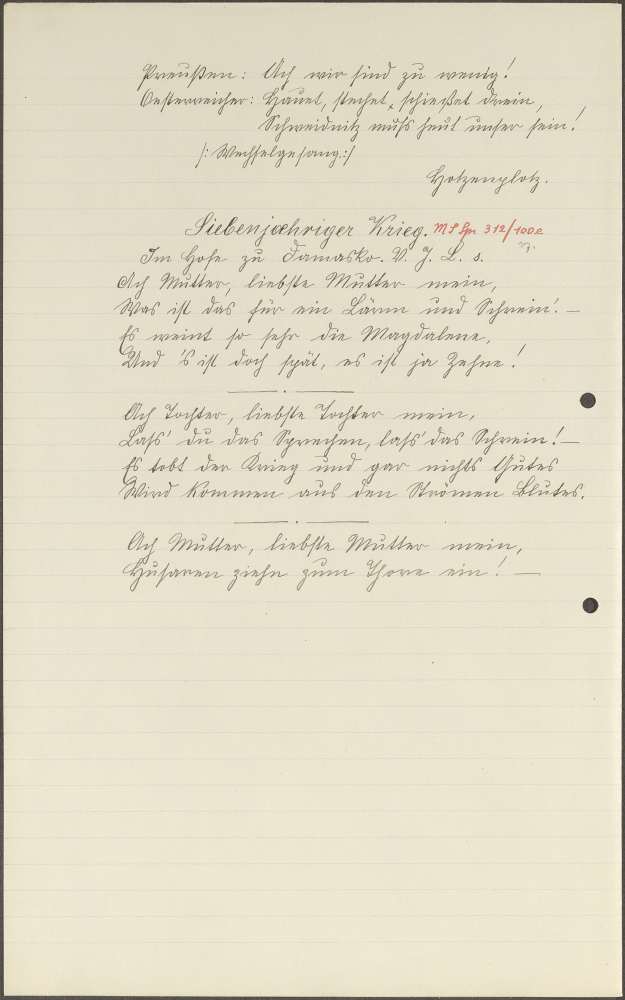 Preußen: Ach wir sind zu wenig!
Oesterreicher: Hauet, stechet, schießet drein,
Schweidnitz muß heut unser sein!
/: Wechselgesang :/
Hotzenplotz.
Siebenjaehriger Krieg. MS Sp 312/100e
Im Hofe zu Damasko. V. J. L. s.
Ach Mutter, liebste Mutter mein,
Was ist das für ein Lärm und Schrein! —
Es weint so sehr die Magdalene,
Und 's ist doch spät, es ist ja Zehne!
Ach Tochter, liebste Tochter mein,
Lass' du das Sprechen, lass' das Schrein! —
Es tobt der Krieg und gar nichts Gutes
Wird kommen aus den Strömen Blutes.
Ach Mutter, liebste Mutter mein,
Husaren ziehn zum Thore ein! —